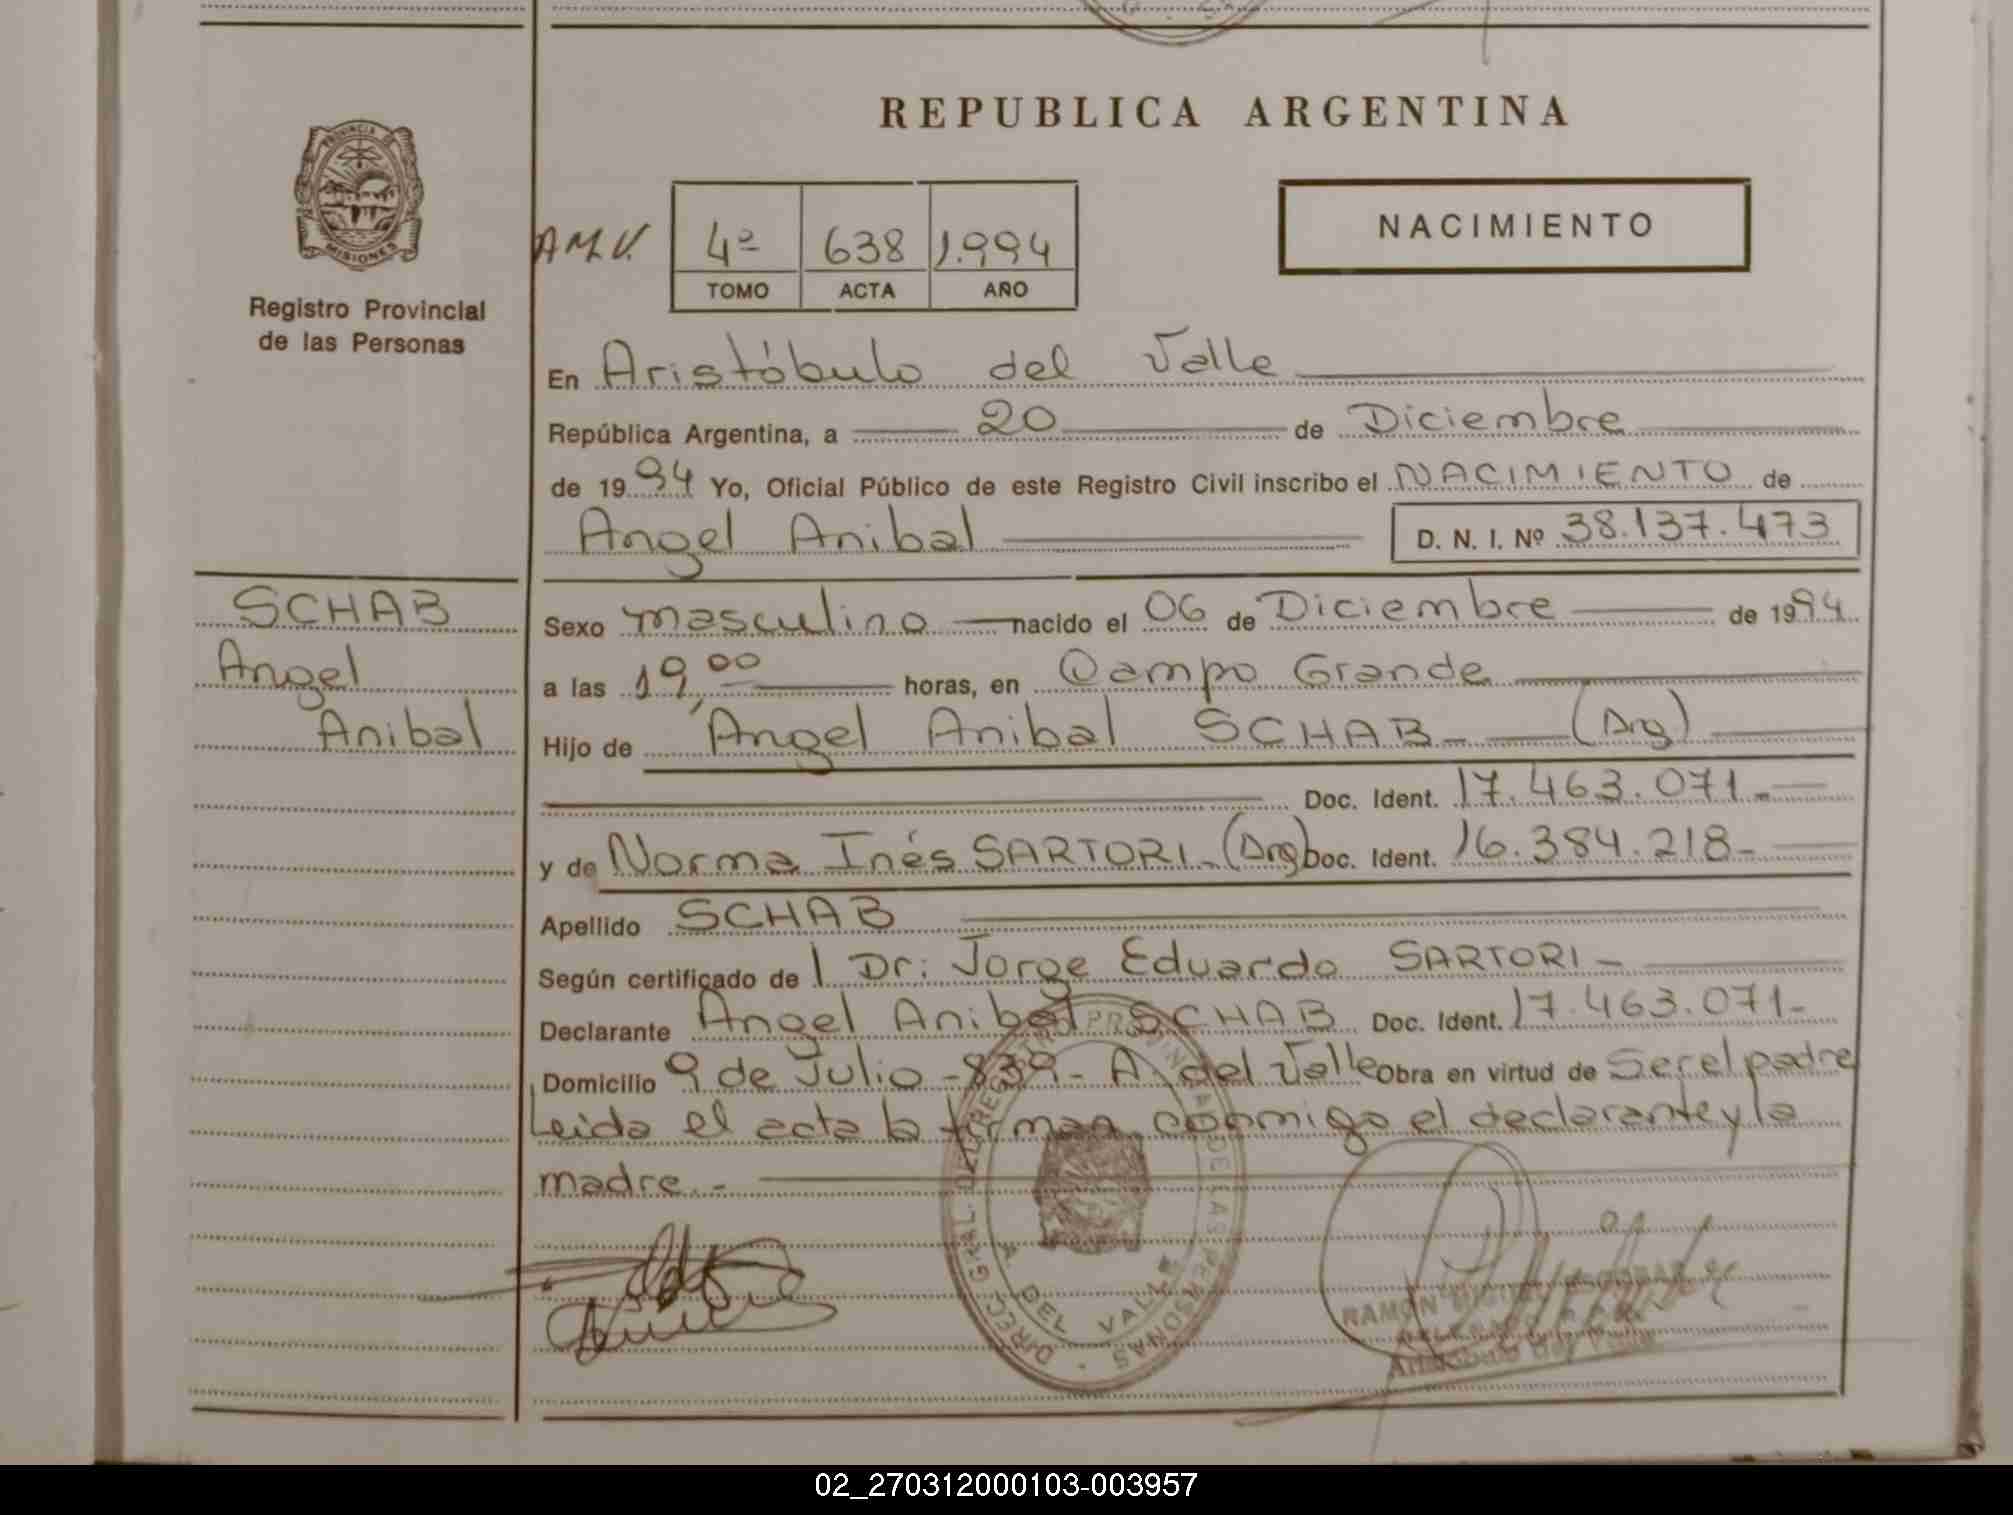 REPUBLICA ARGENTINA
PROVINCIA DE
MISIONES
Registro Provincial
de las Personas
NACIMIENTO
A.M.V.
4º 638 1.994
TOMO ACTA AÑO
En Aristóbulo del Valle
República Argentina, a 20 de Diciembre
de 1994 Yo, Oficial Público de este Registro Civil inscribo el NACIMIENTO de
Angel Anibal D. N. I. Nº 38.137.473
SCHAB
Angel
Anibal
Sexo masculino nacido el 06 de Diciembre de 1994
a las 19,00 horas, en Campo Grande
Hijo de Angel Anibal SCHAB - (Arg)
Doc. Ident. 17.463.071-
y de Norma Inés SARTORI - (Arg) Doc. Ident. 16.384.218-
Apellido SCHAB
Según certificado de Dr: Jorge Eduardo SARTORI -
Declarante Angel Anibal SCHAB Doc. Ident. 17.463.071-
Domicilio 9 de Julio - 839 - A. del Valle Obra en virtud de Ser el padre
Leida el acta la firman conmigo el declarante y la
madre.-
DIREC. GRAL. DEL REGISTRO PROVINCIAL DE LAS PERSONAS
A. DEL VALLE
RAMON MIGUEL ESCOBAR
Aristóbulo Del Valle
02_270312000103-003957